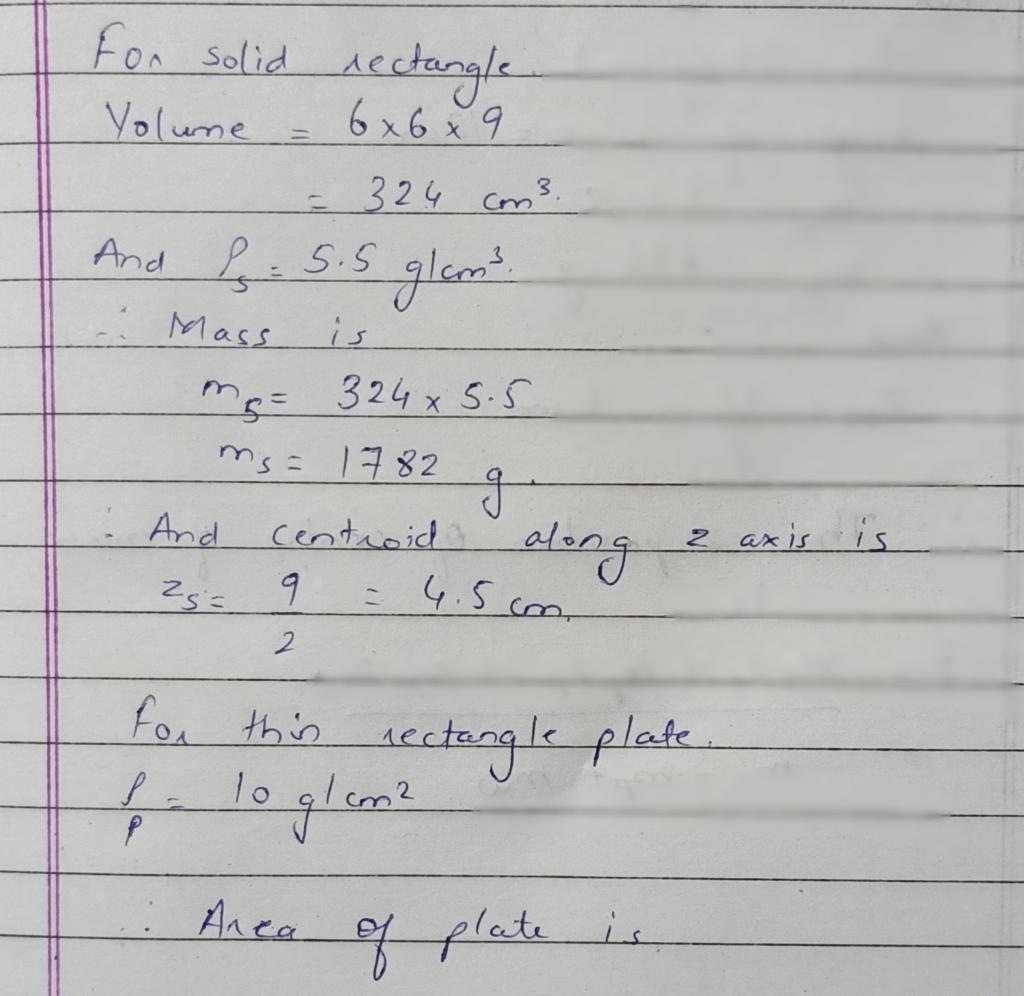 For solid rectangle.
Volume = 6x6x9
= 324 cm³.
And ρs = 5.5 g/cm³.
∴ Mass is
ms = 324 x 5.5
ms = 1782 g.
∴ And centroid along z axis is
zs = 9/2 = 4.5 cm,
For thin rectangle plate.
ρp = 10 g/cm²
∴ Area of plate is